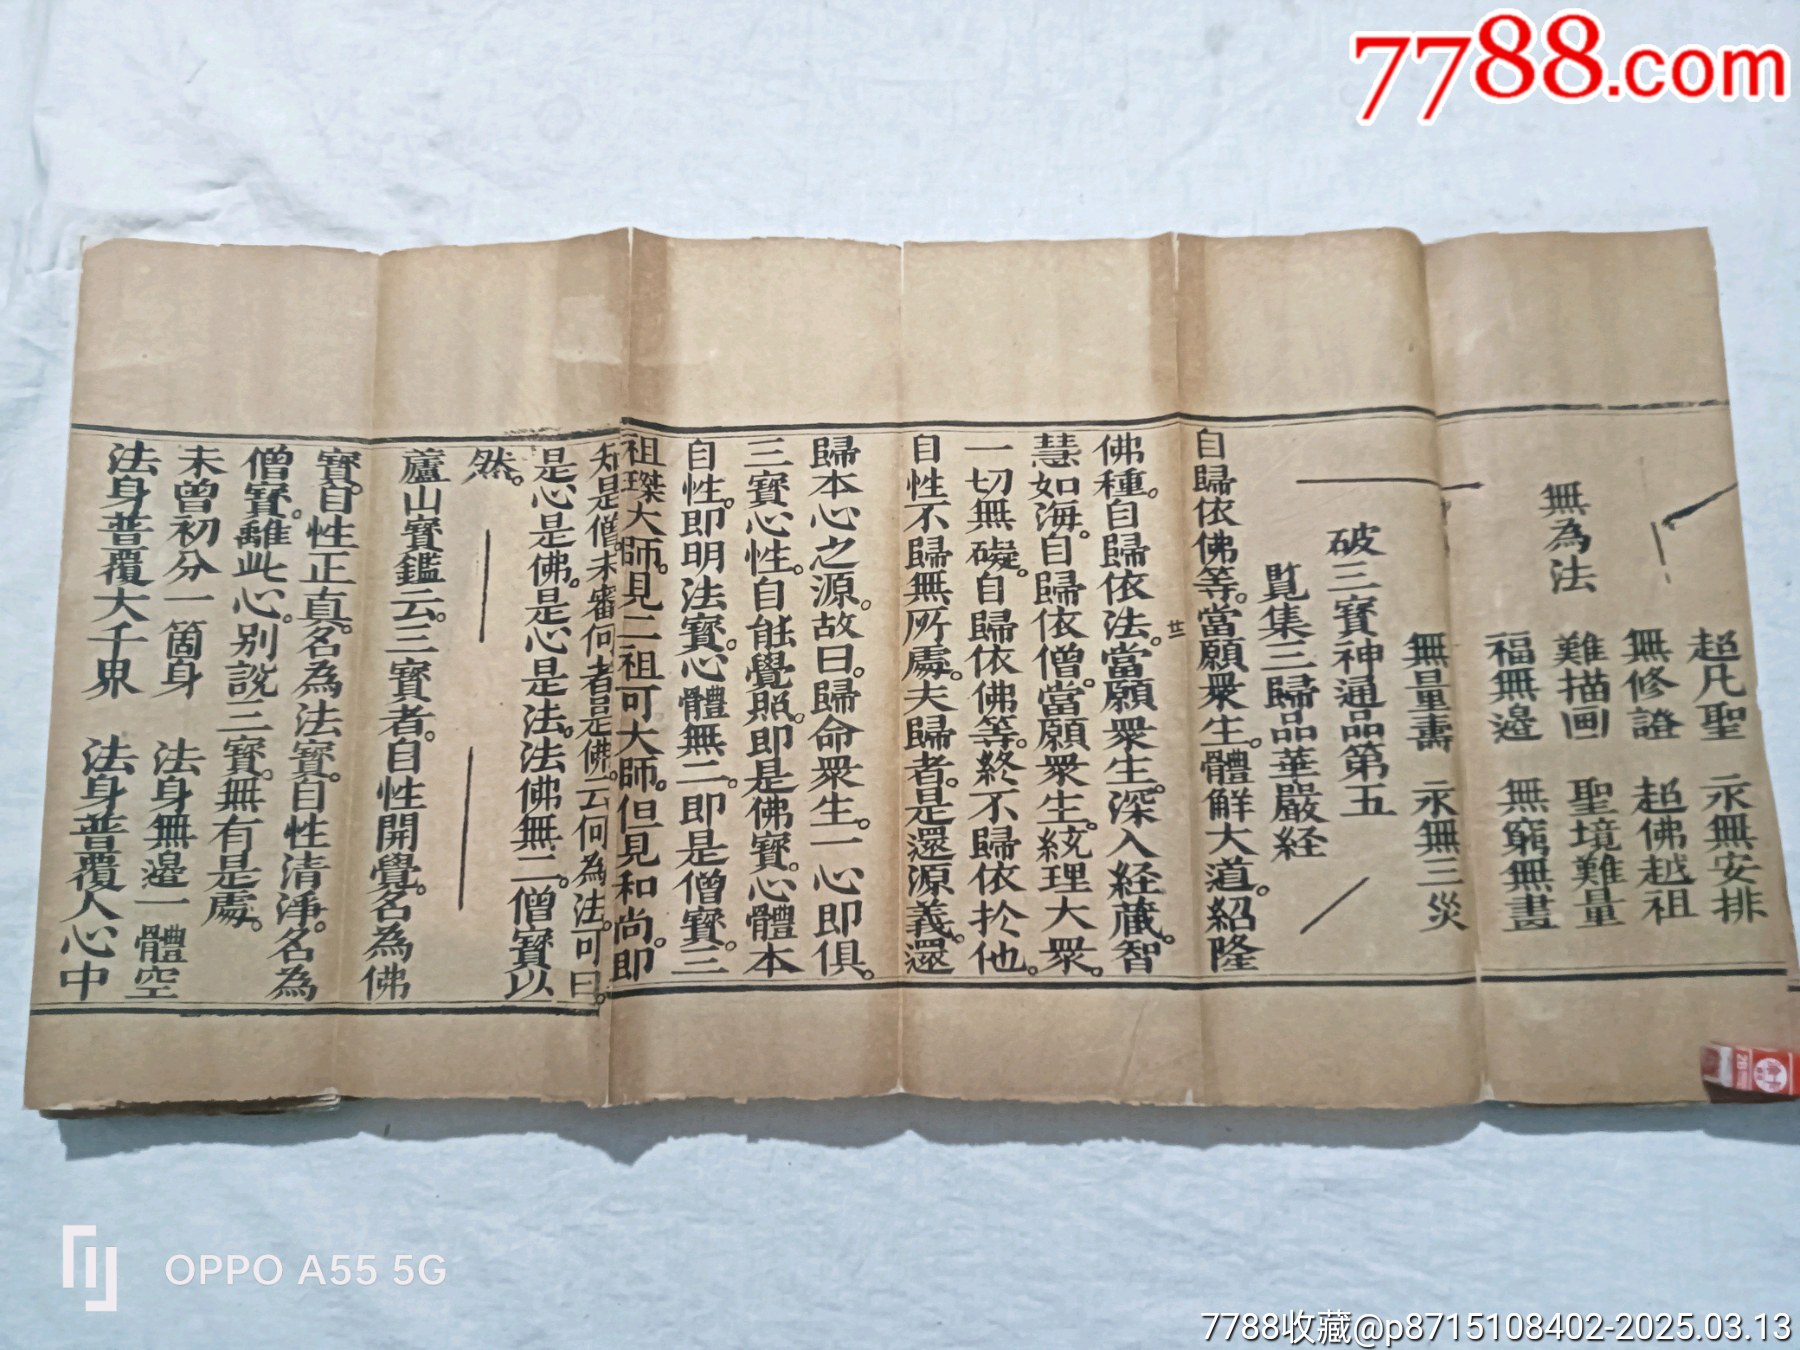 7788.com
超凡聖 永無安排
無修證 超佛越祖
無為法 難描画 聖境難量
福無邊 無窮無盡
無量壽 永無三災
破三寶神通品第五
覧集三歸品華嚴経
自歸依佛等。當願眾生。體解大道。紹隆
佛種。自歸依法。當願眾生。深入経藏。智
廿二
慧如海。自歸依僧。當願眾生。統理大眾。
一切無礙。自歸依佛等。終不歸依於他。
自性不歸無所處。夫歸者。是還源義。還
歸本心之源。故曰。歸命眾生。一心即俱。
三寶心性。自能覺照。即是佛寶。心體本
自性。即明法寶。心體無二。即是僧寶。三
祖璨大師。見二祖可大師。但見和尚。即
知是僧。未審何者是佛。云何為法。可曰。
是心是佛。是心是法。法佛無二。僧寶以
然。
蘆山寶鑑云。三寶者。自性開覺。名為佛
寶。自性正真。名為法寶。自性清淨。名為
僧寶。離此心。別說三寶。無有是處。
未曾初分一箇身 法身無邊一體空
法身普覆大千界 法身普覆人心中
OPPO A55 5G
7788收藏@p8715108402-2025.03.13